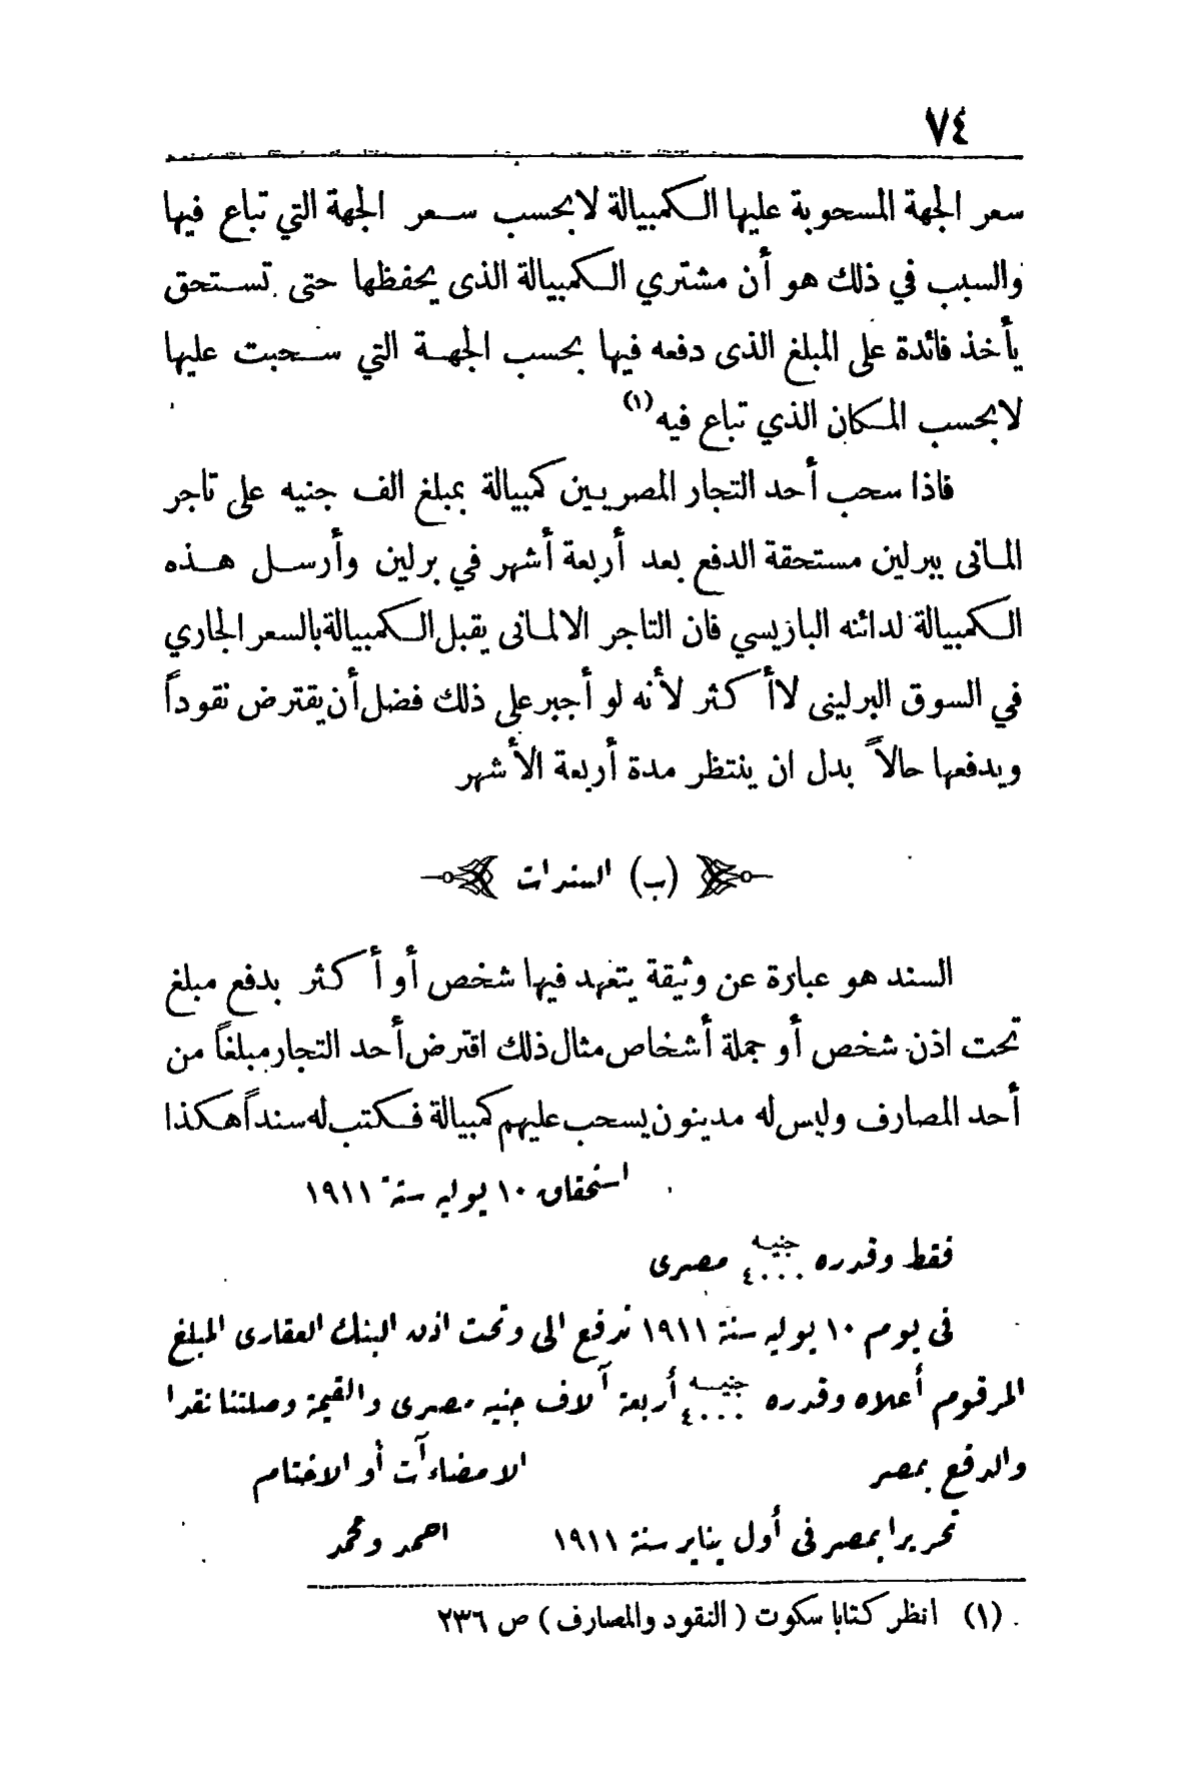 ٧٤
سعر الجهة المسحوبة عليها الكمبيالة لا بحسب سعر الجهة التي تباع فيها
والسبب في ذلك هو أن مشتري الكمبيالة الذى يحفظها حتى تستحق
يأخذ فائدة على المبلغ الذى دفعه فيها بحسب الجهة التي سحبت عليها
لا بحسب المكان الذي تباع فيه (١)
فاذا سحب أحد التجار المصريين كمبيالة بمبلغ الف جنيه على تاجر
المانى ببرلين مستحقة الدفع بعد أربعة أشهر في برلين وأرسل هذه
الكمبيالة لدائنه الباريسي فان التاجر الالمانى يقبل الكمبيالة بالسعر الجاري
في السوق البرلينى لا أكثر لأنه لو أجبر على ذلك فضل أن يقترض نقوداً
ويدفعها حالاً بدل ان ينتظر مدة أربعة الأشهر
(ب) السندات
السند هو عبارة عن وثيقة يتعهد فيها شخص أو أكثر بدفع مبلغ
تحت اذن شخص أو جملة أشخاص مثال ذلك اقترض أحد التجار مبلغاً من
أحد المصارف وليس له مدينون يسحب عليهم كمبيالة فكتب له سنداً هكذا
استحقاق ١٠ يوليه سنة ١٩١١
فقط وقدره جنيه ٤٠٠٠ مصرى
فى يوم ١٠ يوليه سنة ١٩١١ ندفع الى وتحت اذن البنك العقارى المبلغ
المرقوم أعلاه وقدره جنيه ٤٠٠٠ أربعة آلاف جنيه مصرى والقيمة وصلتنا نقدا
والدفع بمصر الامضاءآت أو الاختام
تحريرا بمصر فى أول يناير سنة ١٩١١ احمد ومحمد
(١) انظر كتابا سكوت (النقود والمصارف) ص ٢٣٦